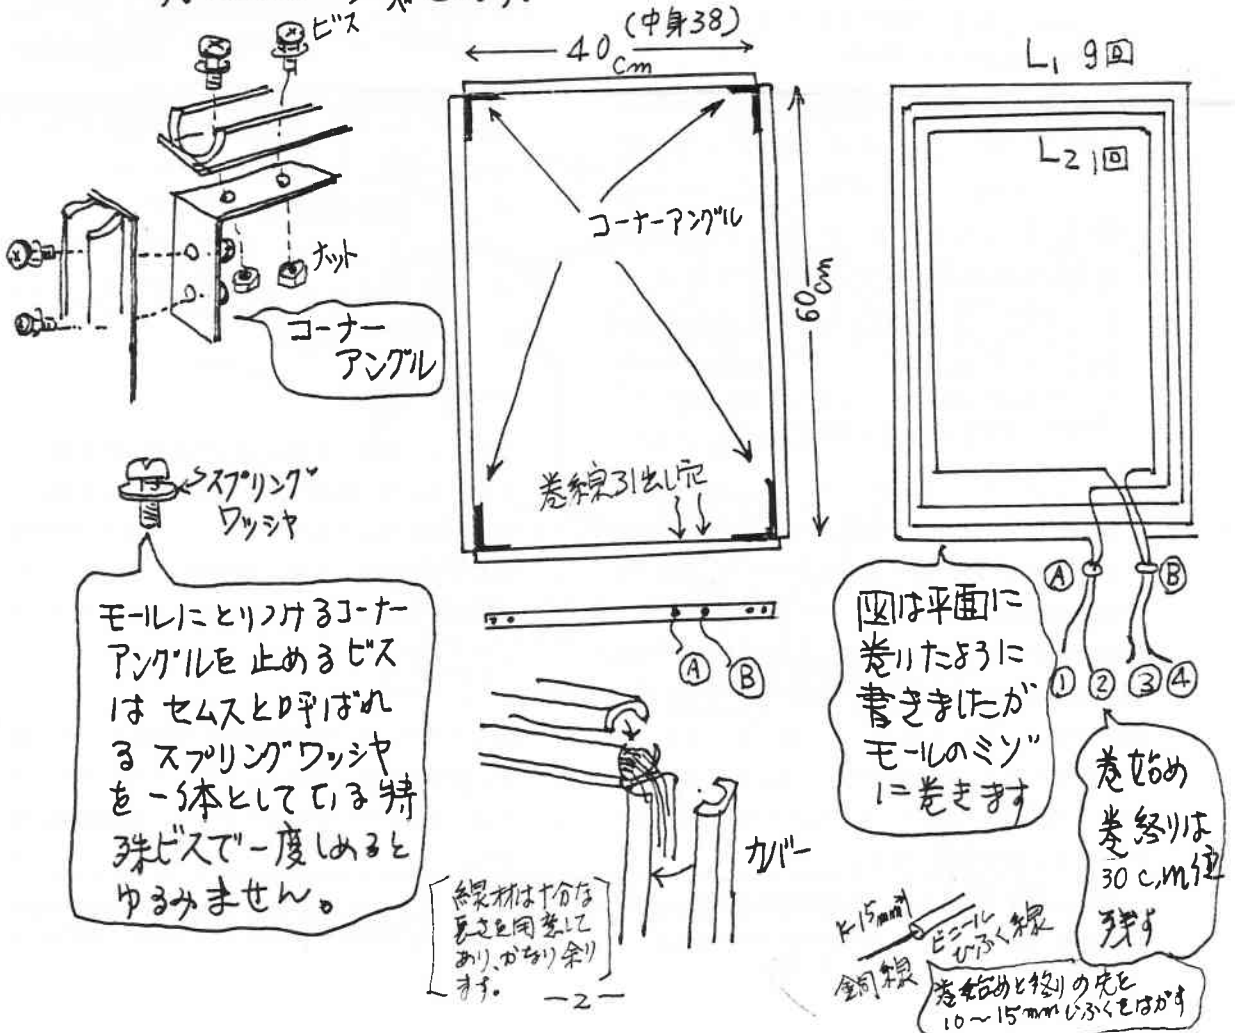 ビス
ナット
コーナー
アングル
スプリング
ワッシャ
モールにとりつけるコーナー
アングルを止めるビス
は セムスと呼ばれ
る スプリングワッシャ
を一体としている特
殊ビスで一度しめると
ゆるみません。
(中身38)
40cm
コーナーアングル
60cm
巻線引出し穴
Ⓐ Ⓑ
カバー
線材は十分な
長さを用意して
あり、かなり余り
ます。
L1 9回
L2 1回
Ⓐ Ⓑ
① ② ③ ④
図は平面に
巻いたように
書きましたが
モールのミゾ
に巻きます
巻始め
巻終りは
30c,m位
残す
15mm
ビニール
ひふく線
銅線
巻始めと終りの先を
10〜15mmひふくをはがす
-2-